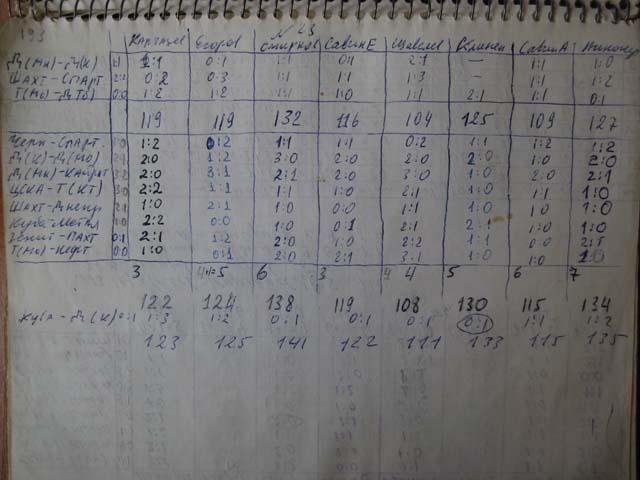 193 № 23
Карташев Егоров Смирнов Савин Е Щавелев Савин А
Д(Мн)-Д(К) 2:1 0:1 1:1 0:1 2:1 — 1:1 1:0
Шахт-Спарт 2:2 0:2 0:3 1:1 1:1 1:3 — 1:1 1:2
Т(Мо)-Д(Тб) 0:0 1:2 1:2 1:1 1:0 1:1 2:1 1:1 0:1
119 119 132 116 104 125 109 127
Черн-Спарт. 1:0 1:2 0:2 1:1 1:1 0:2 1:1 1:2 1:2
Д(К)-Д(Мо) 2:1 2:0 1:2 3:0 2:0 2:0 2:0 1:0 2:0
Д(Мн)-Кайрат 3:2 2:0 3:1 2:1 2:0 3:0 1:0 2:0 2:1
ЦСКА-Т(КТ) 3:0 2:2 1:1 1:1 1:0 2:1 1:0 1:1 1:0
Шахт-Днепр 2:1 1:0 2:1 1:0 0:0 1:1 1:0 1:0 1:0
Куба-Метал 1:0 2:2 0:0 1:0 0:1 2:1 2:1 1:0 1:0
Зенит-Пахт 0:1 2:1 1:2 2:0 1:0 2:2 1:1 0:0 2:1
Т(Мо)-Нефт 0:0 1:0 0:1 2:0 2:1 3:1 1:0 1:0 1:0
3 5 6 3 4 5 6 7
122 124 138 119 108 130 115 134
Куба-Д(К) 0:1 1:3 1:2 0:1 0:1 0:1 0:1 1:1 1:2
123 125 141 122 111 133 115 135